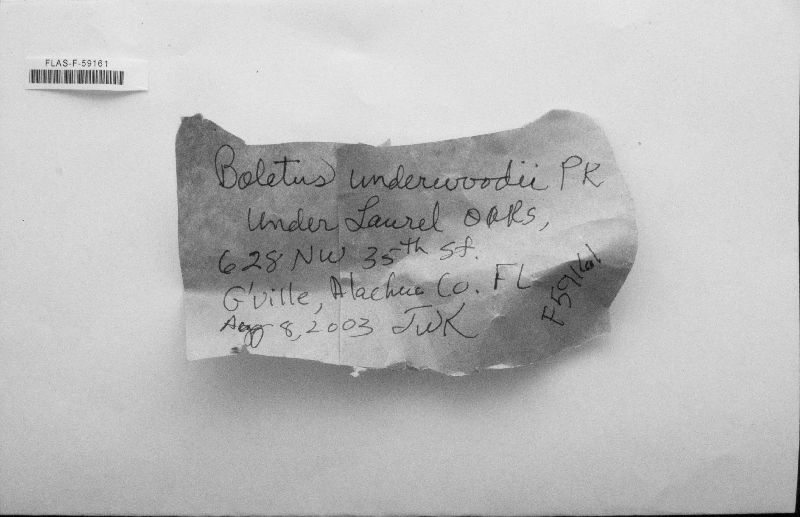 FLAS-F-59161
Boletus underwoodii PK
Under Laurel OAKS,
628 NW 35th St.
G'ville, Alachua Co. FL
Aug 8, 2003 JWK
F59161